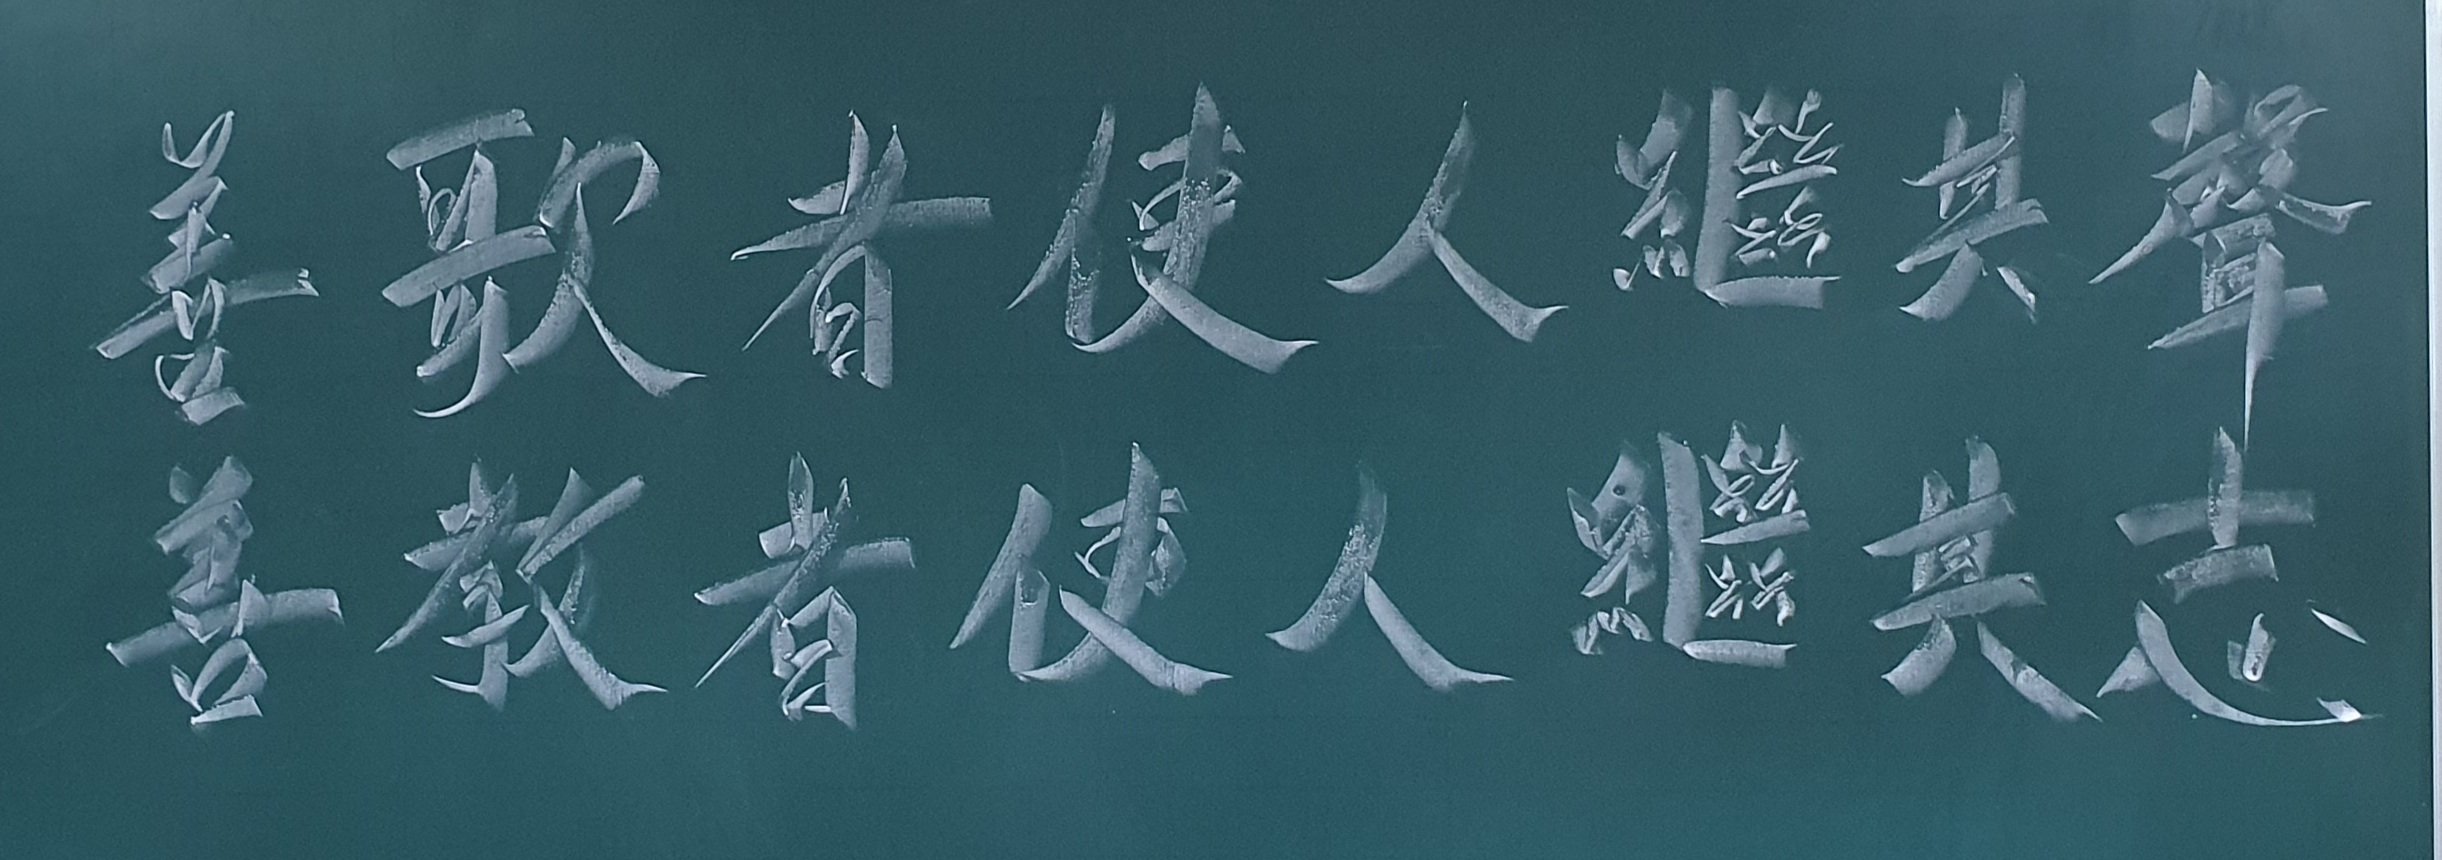 善歌者使人繼其聲
善教者使人繼其志